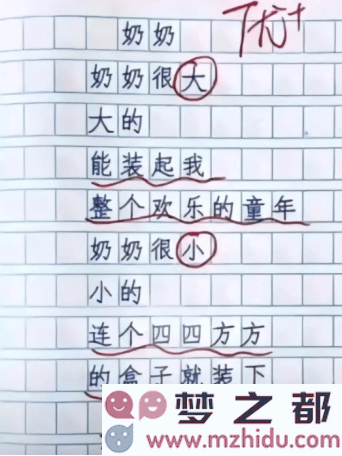 奶奶
优+
奶奶很大
大的
能装起我
整个欢乐的童年
奶奶很小
小的
连个四四方方
的盒子就装下
梦之都
www.mzhidu.com